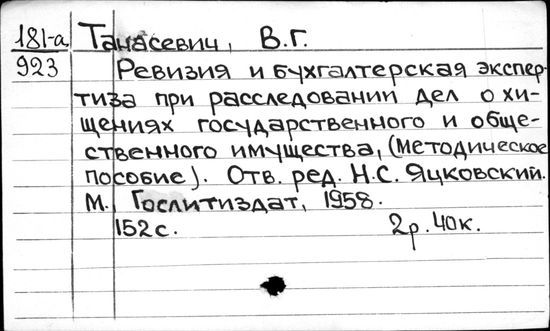 181-а Танасевич, В.Г.
923 Ревизия и бухгалтерская экспер-
тиза при расследовании дел о хи-
щениях государственного и обще-
ственного имущества, (методическое
пособие). Отв. ред. Н.С. Яцковский.
М. Гослитиздат, 1958.
152 с. 2р. 40к.